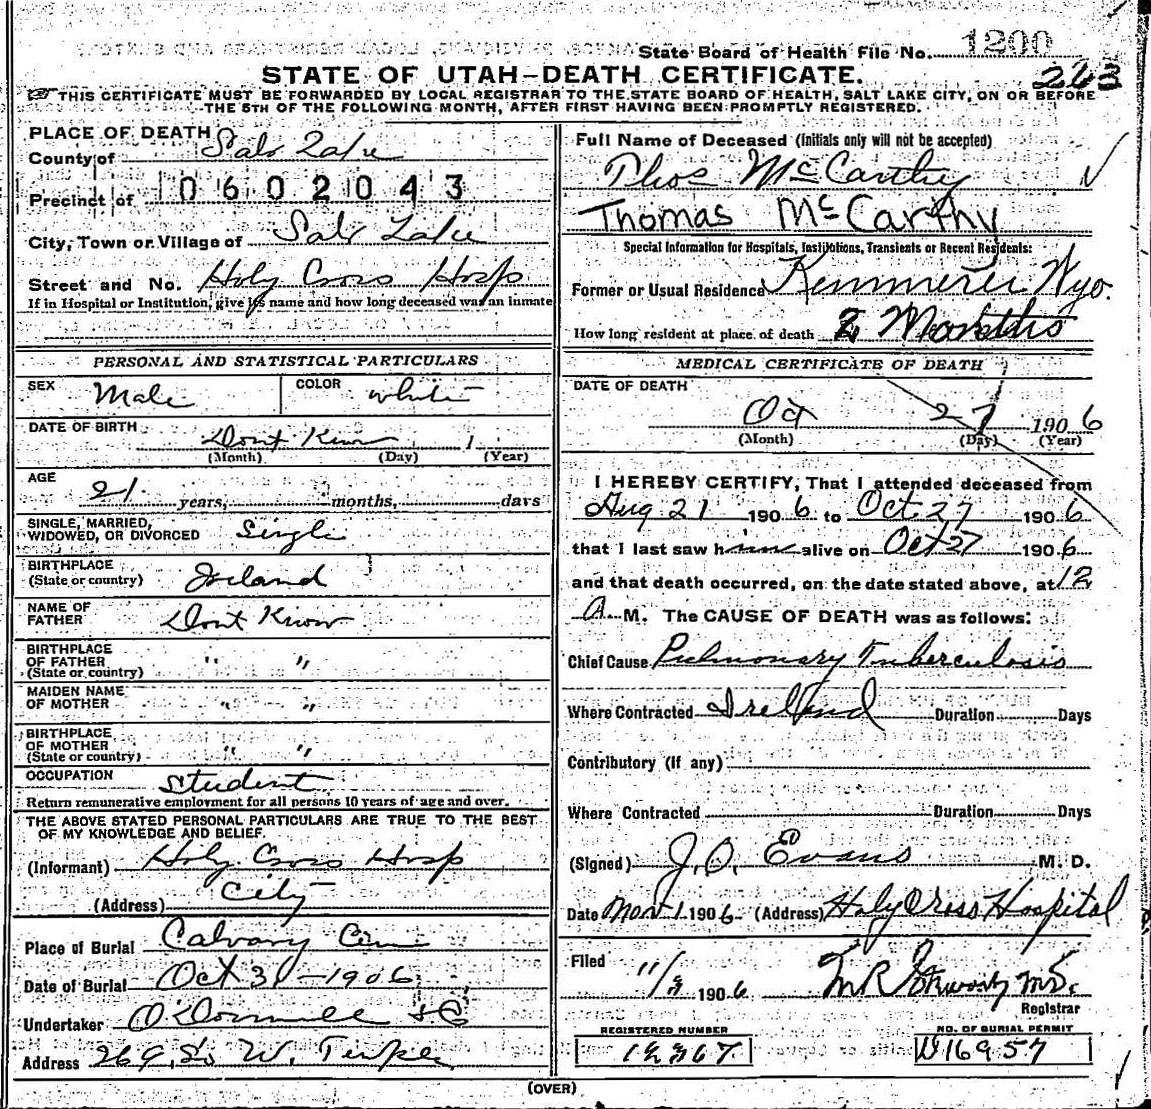 State Board of Health File No. 1200
263
STATE OF UTAH—DEATH CERTIFICATE.
THIS CERTIFICATE MUST BE FORWARDED BY LOCAL REGISTRAR TO THE STATE BOARD OF HEALTH, SALT LAKE CITY, ON OR BEFORE
THE 5TH OF THE FOLLOWING MONTH, AFTER FIRST HAVING BEEN PROMPTLY REGISTERED.
PLACE OF DEATH
County of Salt Lake
Precinct of 0602043
City, Town or Village of Salt Lake
Street and No. Holy Cross Hosp
If in Hospital or Institution, give its name and how long deceased was an inmate
PERSONAL AND STATISTICAL PARTICULARS
SEX Male COLOR White
DATE OF BIRTH Dont Know
(Month) (Day) (Year)
AGE
21 years, months, days
SINGLE, MARRIED,
WIDOWED, OR DIVORCED Single
BIRTHPLACE
(State or country) Ireland
NAME OF
FATHER Dont Know
BIRTHPLACE
OF FATHER " "
(State or country)
MAIDEN NAME
OF MOTHER " "
BIRTHPLACE
OF MOTHER " "
(State or country)
OCCUPATION Student
Return remunerative employment for all persons 10 years of age and over.
THE ABOVE STATED PERSONAL PARTICULARS ARE TRUE TO THE BEST
OF MY KNOWLEDGE AND BELIEF.
(Informant) Holy Cross Hosp
(Address) City
Place of Burial Calvary Cem
Date of Burial Oct 31-1906
Undertaker O'Donnell & Co
Address 269 So W. Temple
Full Name of Deceased (Initials only will not be accepted)
Thos McCarthy
Thomas McCarthy
Special Information for Hospitals, Institutions, Transients or Recent Residents:
Former or Usual Residence Kemmerer Wyo.
How long resident at place of death 2 Months
MEDICAL CERTIFICATE OF DEATH
DATE OF DEATH
Oct 27 1906
(Month) (Day) (Year)
I HEREBY CERTIFY, That I attended deceased from
Aug 21 1906 to Oct 27 1906
that I last saw him alive on Oct 27 1906
and that death occurred, on the date stated above, at 12
A. M. The CAUSE OF DEATH was as follows:
Chief Cause Pulmonary Tuberculosis
Where Contracted Ireland Duration Days
Contributory (if any)
Where Contracted Duration Days
(Signed) J.O. Evans M. D.
Date Nov 1 1906 (Address) Holy Cross Hospital
Filed 11/3 1906 M.D.
Registrar
REGISTERED NUMBER NO. OF BURIAL PERMIT
12367 16957
(OVER)